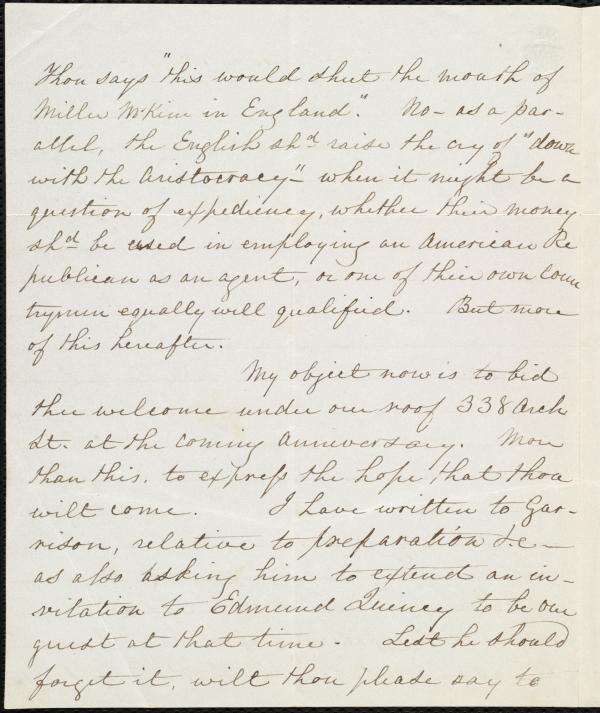 Thou says "this would shut the mouth of
Miller McKim in England". No – as a par-
allel, the English shd raise the cry of "down
with the Aristocracy" – when it might be a
question of expediency, whether their money
shd be used in employing an American Re
publican as an agent, or one of their own Coun
trymen equally well qualified. But more
of this hereafter.
My object now is to bid
thee welcome under our roof 338 Arch
St. at the coming Anniversary. More
than this, to express the hope, that thou
wilt come. I have written to Gar-
rison, relative to preparation &c –
as also asking him to extend an in-
vitation to Edmund Quincy to be our
guest at that time. Lest he should
forget it, wilt thou please say to